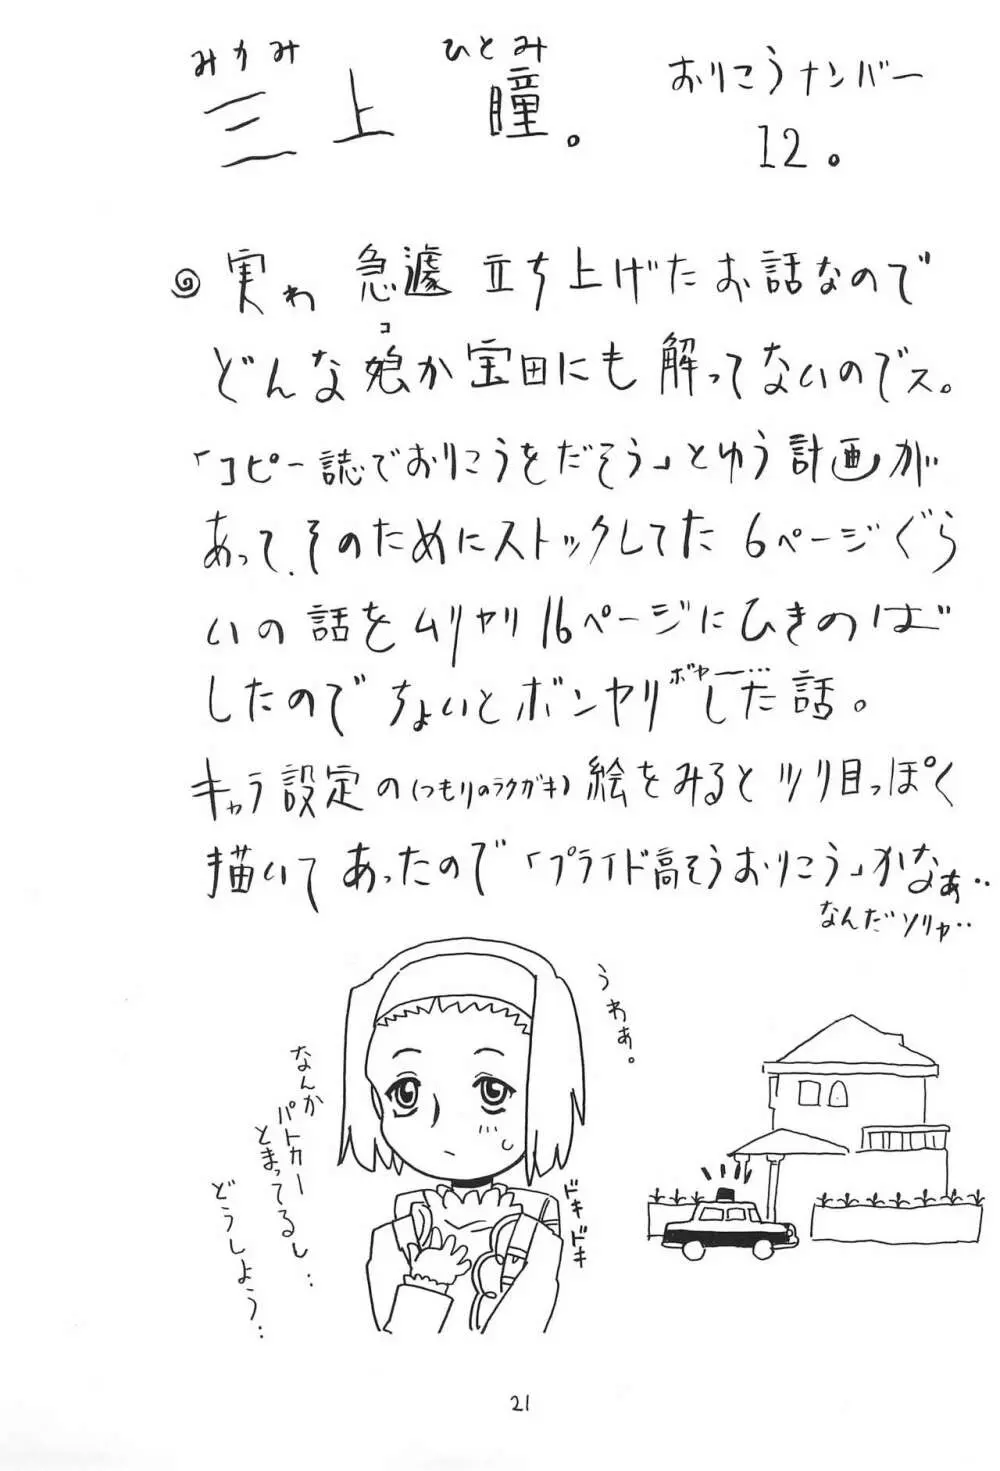 みかみ ひとみ
三上 瞳。
おりこうナンバー
12。
実わ 急遽 立ち上げたお話なので
コ
どんな娘か宝田にも 解ってないのでス。
「コピー誌でおりこうをだそう」とゆう計画が
あって、そのためにストックしてた 6ページぐら
いの話をムリヤリ16ページにひきのば
ボヤー…
したので ちょいとボンヤリした話。
キャラ設定の(つもりのラクガキ)絵をみるとツリ目っぽく
描いてあったので「プライド高そうおりこう」かなぁ‥
なんだソリャ‥
うわぁ。
なんか
パトカー
とまってるし…
どうしよう…
ドキドキ
21